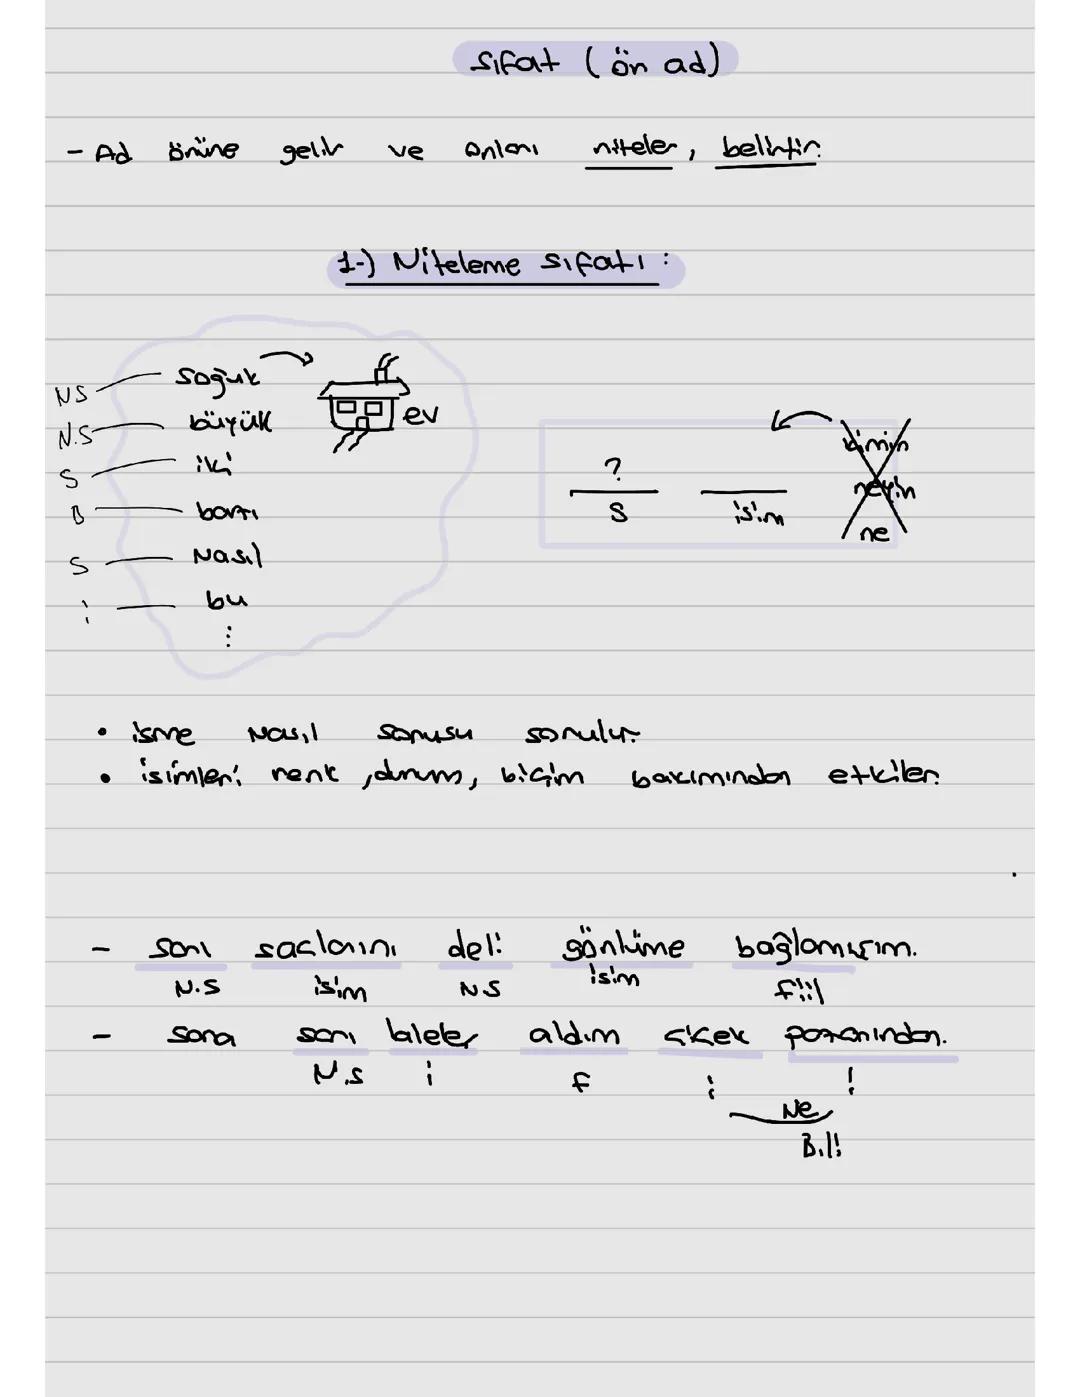 Sıfat (ön ad)
- Ad önüne gelir ve onları niteler, belirtir.
1-) Niteleme sıfatı:
NS soğuk
N.S büyük ev
S iki
B bazı
S Nasıl
i bu
⋮
? kimin
neyin
S isim ne
• isme Nasıl sorusu sorulur.
• isimleri renk, durum, biçim bakımından etkiler.
- sarı saclarını deli gönlüme bağlamışım.
N.S isim NS isim fiil
- sana sarı laleler aldım çiçek pazarından.
N.S i f i i
Ne
B.li